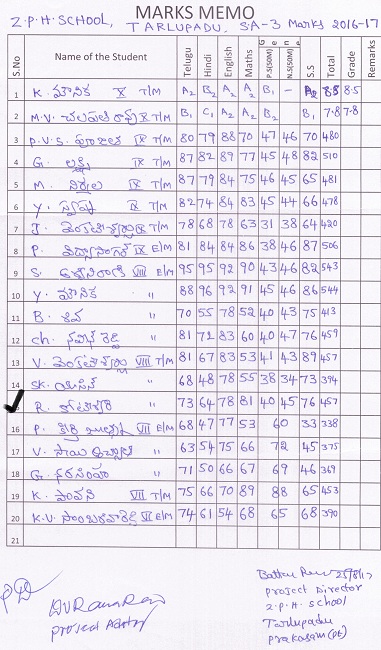 MARKS MEMO
Z.P.H. SCHOOL, TARLUPADU, SA-3 Marks 2016-17
S.No Name of the Student Telugu Hindi English Maths Gene P.S(50M) N.S(50M) S.S Total Grade Remarks
1 K. మౌనిక X T/M A2 B2 A2 A2 B1 - A2 8.8 8.5
2 M.V. X T/M B1 C1 A2 A2 B2 B1 7.8 7.8
3 P.V.S. IX T/M 80 79 88 70 47 46 70 480
4 G. లక్ష్మి IX T/M 87 82 89 77 45 48 82 510
5 M. నిర్మల IX T/M 87 79 84 75 46 45 65 481
6 Y. స్వప్న IX T/M 82 74 84 83 45 44 66 478
7 J. వెంకటేశ్వర్లు IX T/M 78 68 78 63 31 38 64 420
8 P. విద్యాసాగర్ IX E/M 81 84 84 86 38 46 87 506
9 S. VIII E/M 95 95 92 90 43 46 82 543
10 Y. మౌనిక " 88 96 92 91 45 46 86 544
11 B. శివ " 70 55 78 52 40 43 75 413
12 ch. నవీన్ రెడ్డి " 81 72 83 60 40 47 76 459
13 V. వెంకటేశ్వర్లు VIII T/M 81 67 83 53 41 43 89 457
14 SK. యాసిన్ " 68 48 78 55 38 34 73 394
15 R. " 73 64 78 81 40 45 76 457
16 P. VII E/M 68 47 77 53 60 33 338
17 V. సాయి " 63 54 75 66 72 45 375
18 G. నరసింహా " 71 50 66 67 69 46 369
19 K. పావని VII T/M 75 66 70 89 88 65 453
20 K.V. VII E/M 74 61 54 68 65 68 390
21
25/8/17
Project Director
Z.P.H. School
Tarlupadu
Prakasam (Dt)